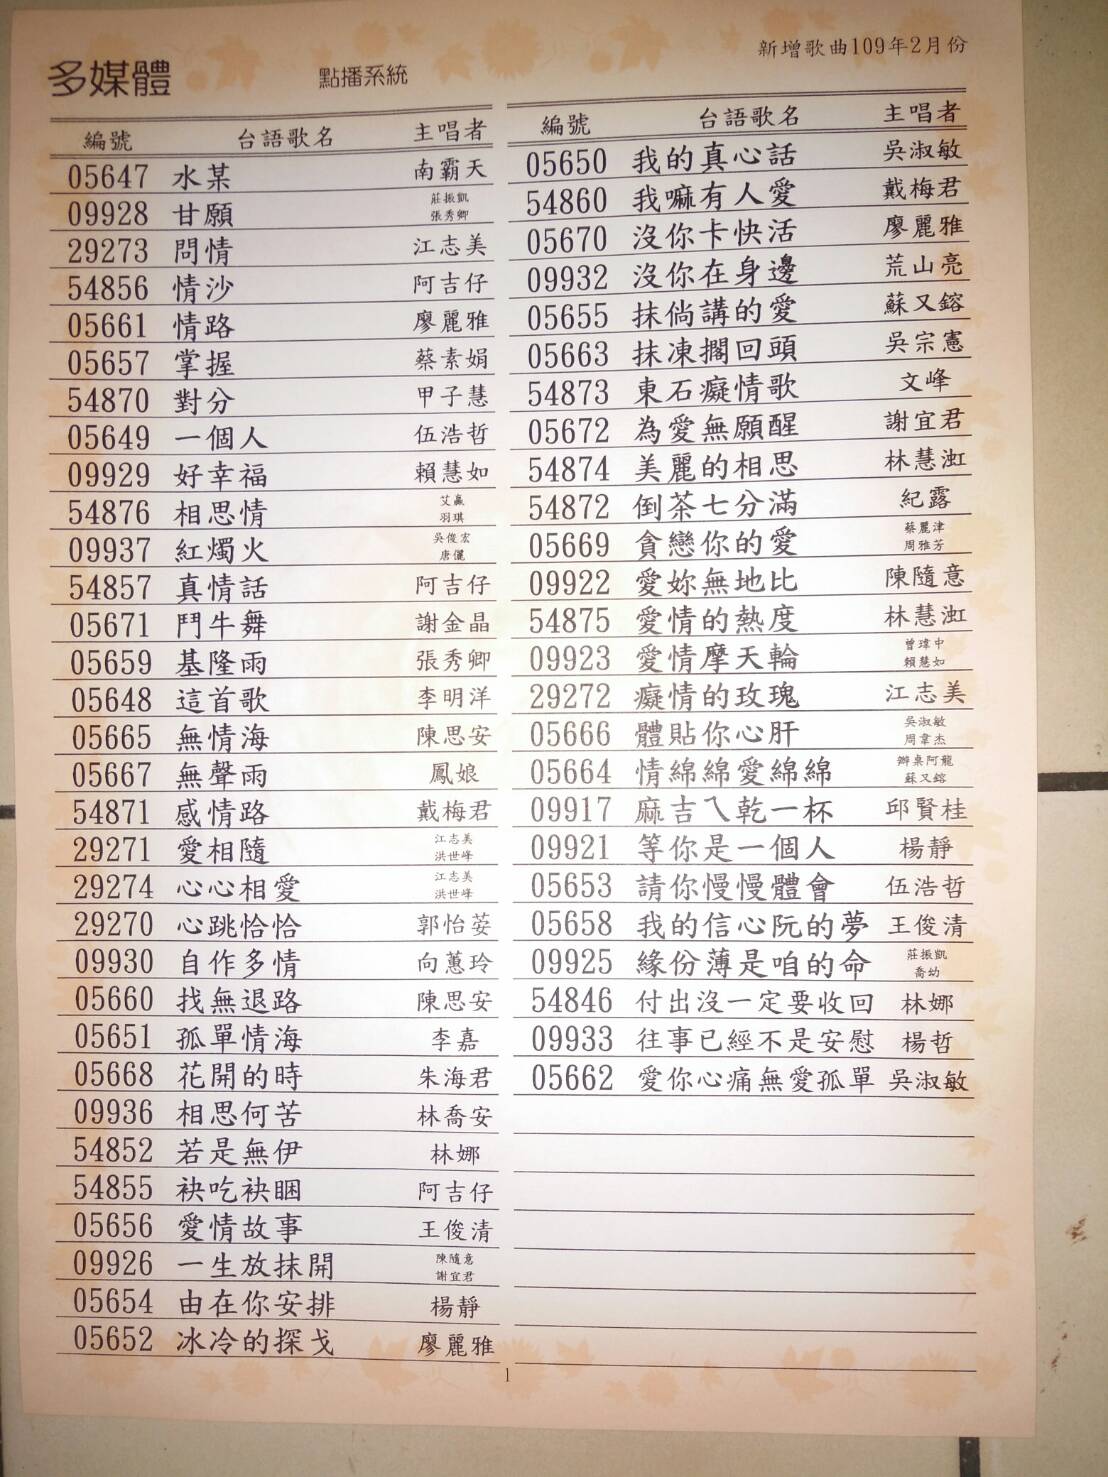 新增歌曲109年2月份
多媒體 點播系統
編號 台語歌名 主唱者
05647 水某 南霸天
09928 甘願 莊振凱 張秀卿
29273 問情 江志美
54856 情沙 阿吉仔
05661 情路 廖麗雅
05657 掌握 蔡素娟
54870 對分 甲子慧
05649 一個人 伍浩哲
09929 好幸福 賴慧如
54876 相思情 艾贏 羽琪
09937 紅燭火 吳俊宏 唐儷
54857 真情話 阿吉仔
05671 鬥牛舞 謝金晶
05659 基隆雨 張秀卿
05648 這首歌 李明洋
05665 無情海 陳思安
05667 無聲雨 鳳娘
54871 感情路 戴梅君
29271 愛相隨 江志美 洪世峰
29274 心心相愛 江志美 洪世峰
29270 心跳恰恰 郭怡荽
09930 自作多情 向蕙玲
05660 找無退路 陳思安
05651 孤單情海 李嘉
05668 花開的時 朱海君
09936 相思何苦 林喬安
54852 若是無伊 林娜
54855 袂吃袂睏 阿吉仔
05656 愛情故事 王俊清
09926 一生放抹開 陳隨意 謝宜君
05654 由在你安排 楊靜
05652 冰冷的探戈 廖麗雅
編號 台語歌名 主唱者
05650 我的真心話 吳淑敏
54860 我嘛有人愛 戴梅君
05670 沒你卡快活 廖麗雅
09932 沒你在身邊 荒山亮
05655 抹倘講的愛 蘇又鎔
05663 抹凍擱回頭 吳宗憲
54873 東石癡情歌 文峰
05672 為愛無願醒 謝宜君
54874 美麗的相思 林慧浤
54872 倒茶七分滿 紀露
05669 貪戀你的愛 蔡麗津 周雅芳
09922 愛妳無地比 陳隨意
54875 愛情的熱度 林慧浤
09923 愛情摩天輪 曾瑋中 賴慧如
29272 癡情的玫瑰 江志美
05666 體貼你心肝 吳淑敏 周韋杰
05664 情綿綿愛綿綿 辦桌阿龍 蘇又鎔
09917 麻吉ㄟ乾一杯 邱賢桂
09921 等你是一個人 楊靜
05653 請你慢慢體會 伍浩哲
05658 我的信心阮的夢 王俊清
09925 緣份薄是咱的命 莊振凱 喬幼
54846 付出沒一定要收回 林娜
09933 往事已經不是安慰 楊哲
05662 愛你心痛無愛孤單 吳淑敏
1